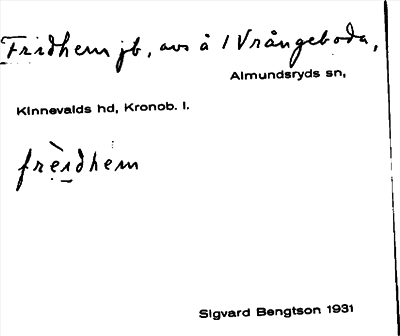 Fridhem jb, avs å 1 Vrångeboda,
Almundsryds sn,
Kinnevalds hd, Kronob. l.
frèidhém
Sigvard Bengtson 1931